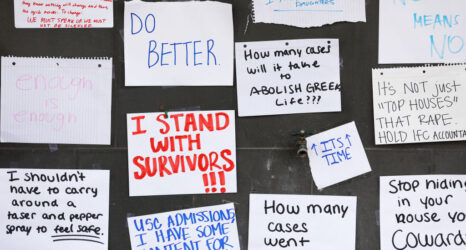 and the cycle never ends. To change it
WE MUST SPEAK UP WE MUST
NOT BE SILENCED.
DO
BETTER.
DAUGHTERS
NO
MEANS
NO
How many cases
will it take to
ABOLISH GREEK
Life???
enough
is
enough
IT'S NOT JUST
"TOP HOUSES"
THAT RAPE.
HOLD IFC ACCOUNTA
I STAND
WITH
SURVIVORS
!!!
↑ ITS ↑
TIME
I shouldn't
have to carry
around a
taser and pepper
spray to feel safe.
USC ADMISSIONS,
I HAVE SOME
CONTENT FOR
How many
cases
went
Stop hiding
in your
house you
Coward